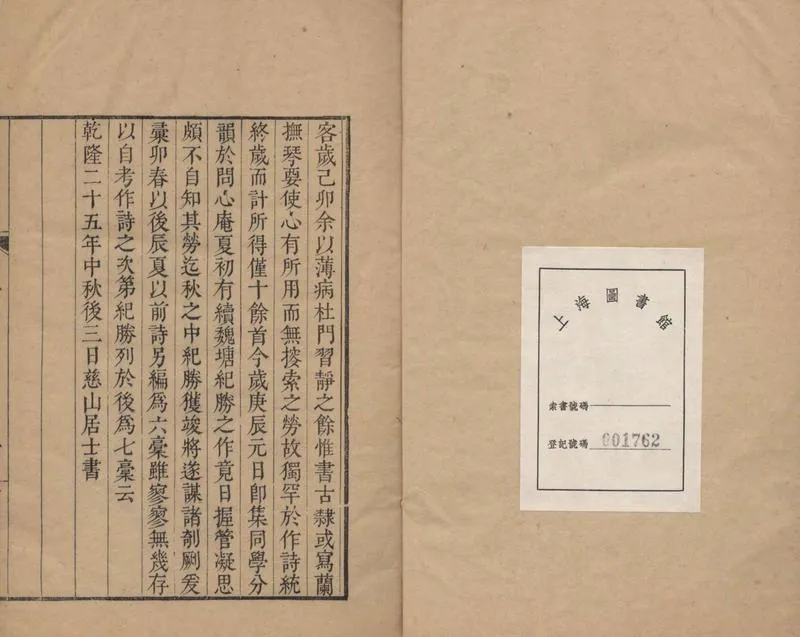 客歲己卯余以薄病杜門習靜之餘惟書古隸或寫蘭
撫琴要使心有所用而無搜索之勞故獨罕於作詩統
終歲而計所得僅十餘首今歲庚辰元日卽集同學分
韻於問心庵夏初有續魏塘紀勝之作竟日握管凝思
頗不自知其勞迄秋之中紀勝獲竣將遂謀諸剞劂爰
彙卯春以後辰夏以前詩另編為六稾雖寥寥無幾存
以自考作詩之次第紀勝列於後為七稾云
乾隆二十五年中秋後三日慈山居士書
上海圖書館
索書號碼
登記號碼 901762